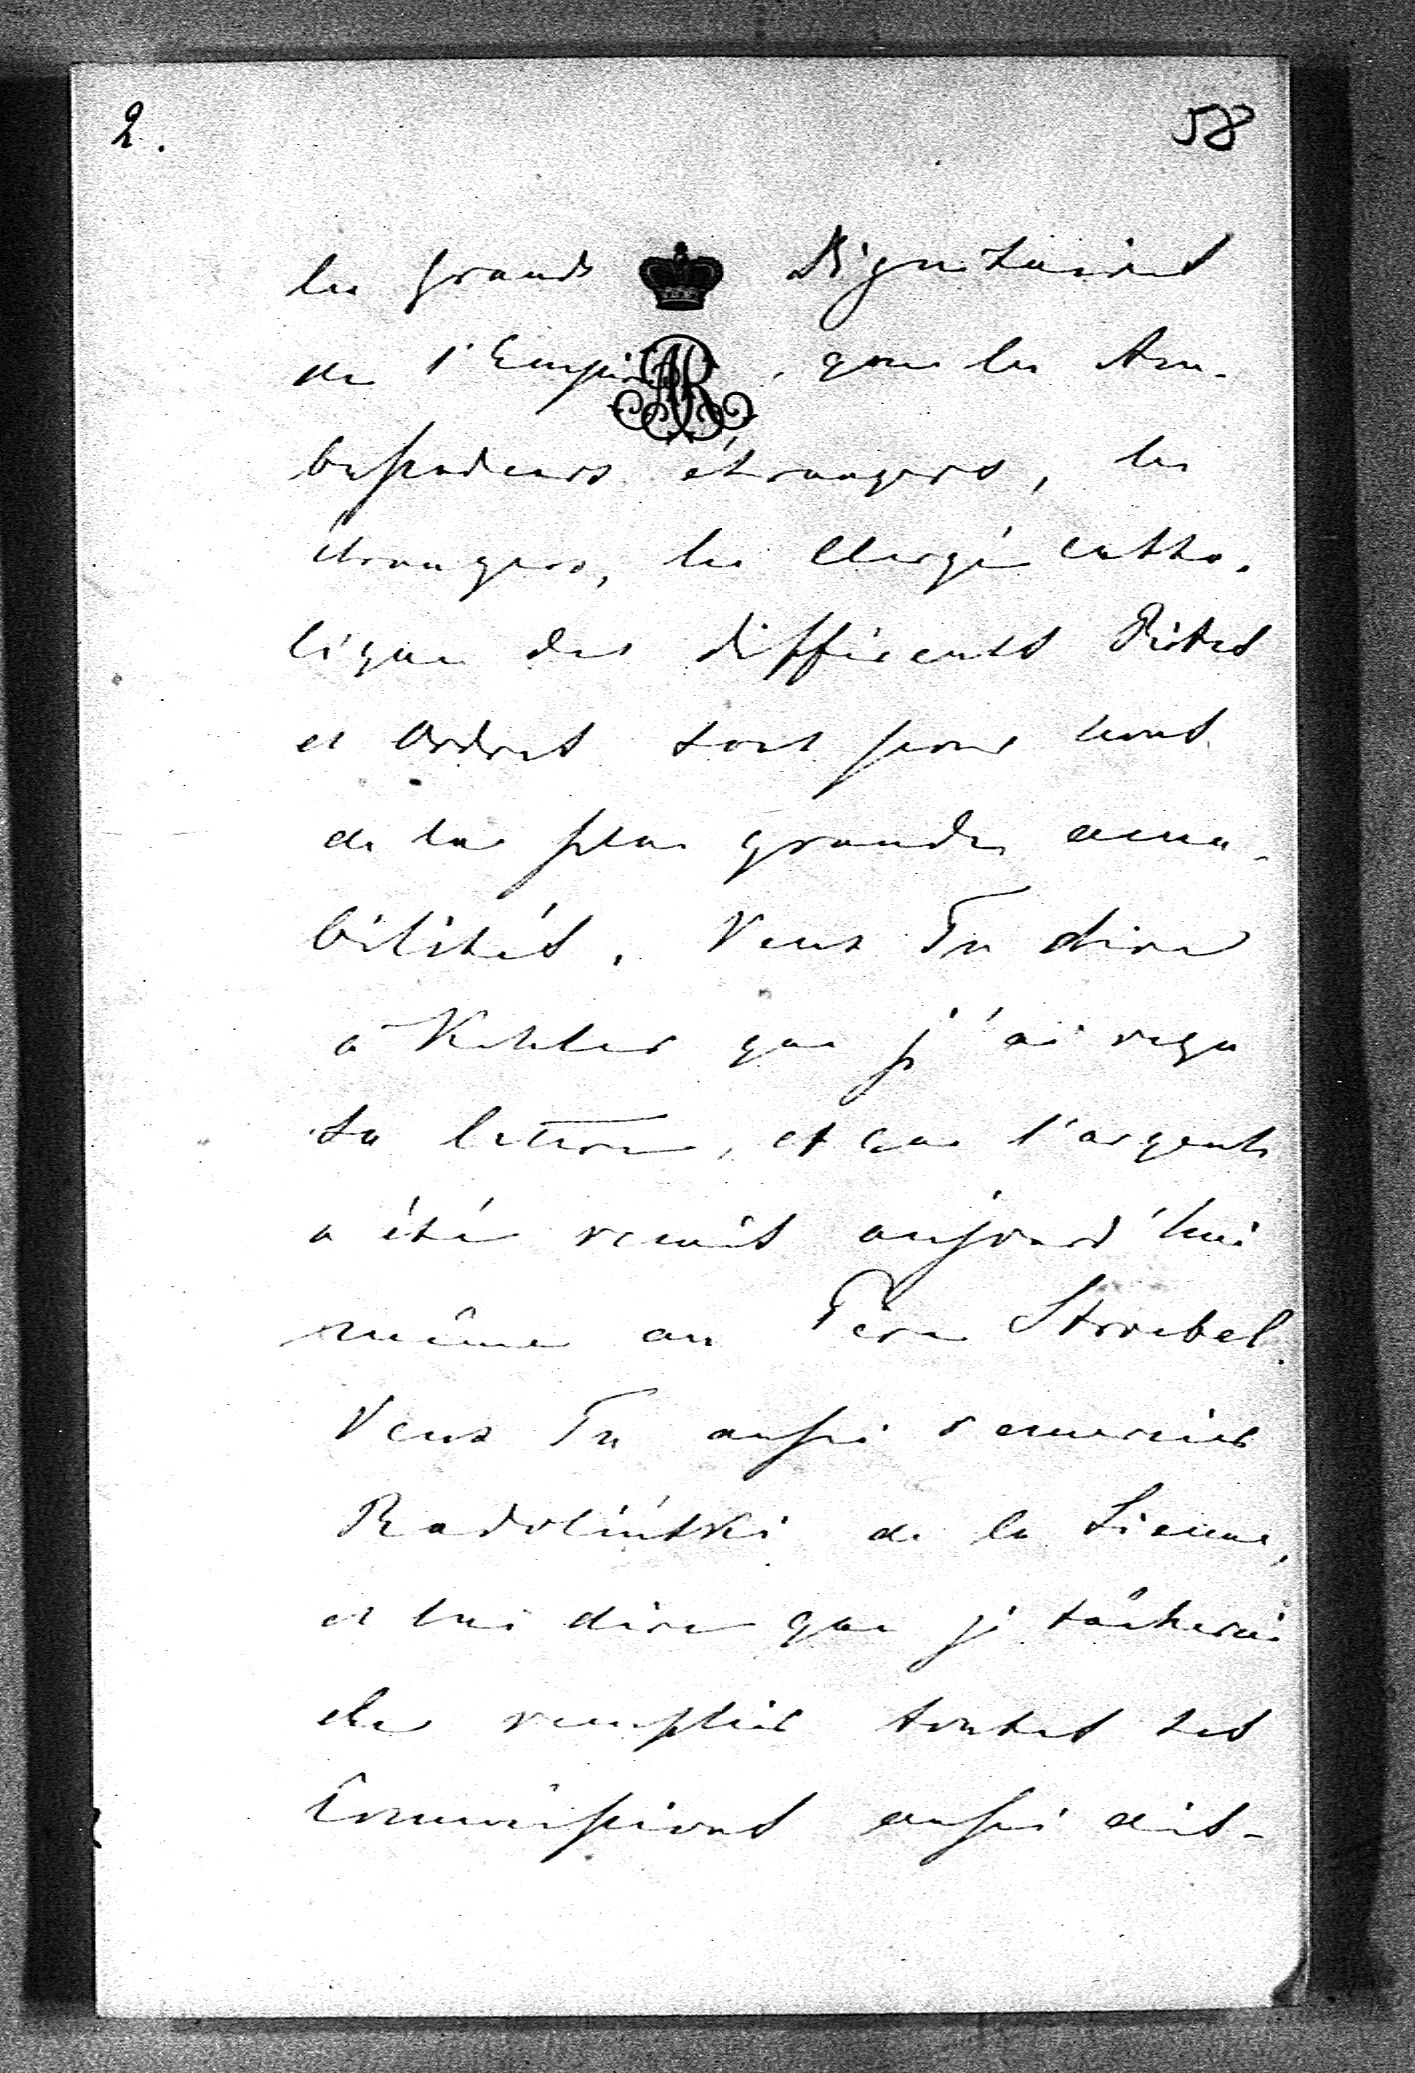 2.
58
les grands Dignitaires
de l'Empire, que les Am-
bassadeurs étrangers, les
étrangers, le Clergé catho-
lique des différents Rites
et Ordres sont pour nous
de la plus grandes ama-
bilités. Veux Tu dire
à Kehler que j'ai reçu
sa lettre, et que l'argent
a été remis aujourd'hui
même au Père Stroebel.
Veux Tu aussi remercier
Radoliński de la Sienne,
et lui dire que je tâcherai
de remplir toutes ses
Commissions aussi dis-